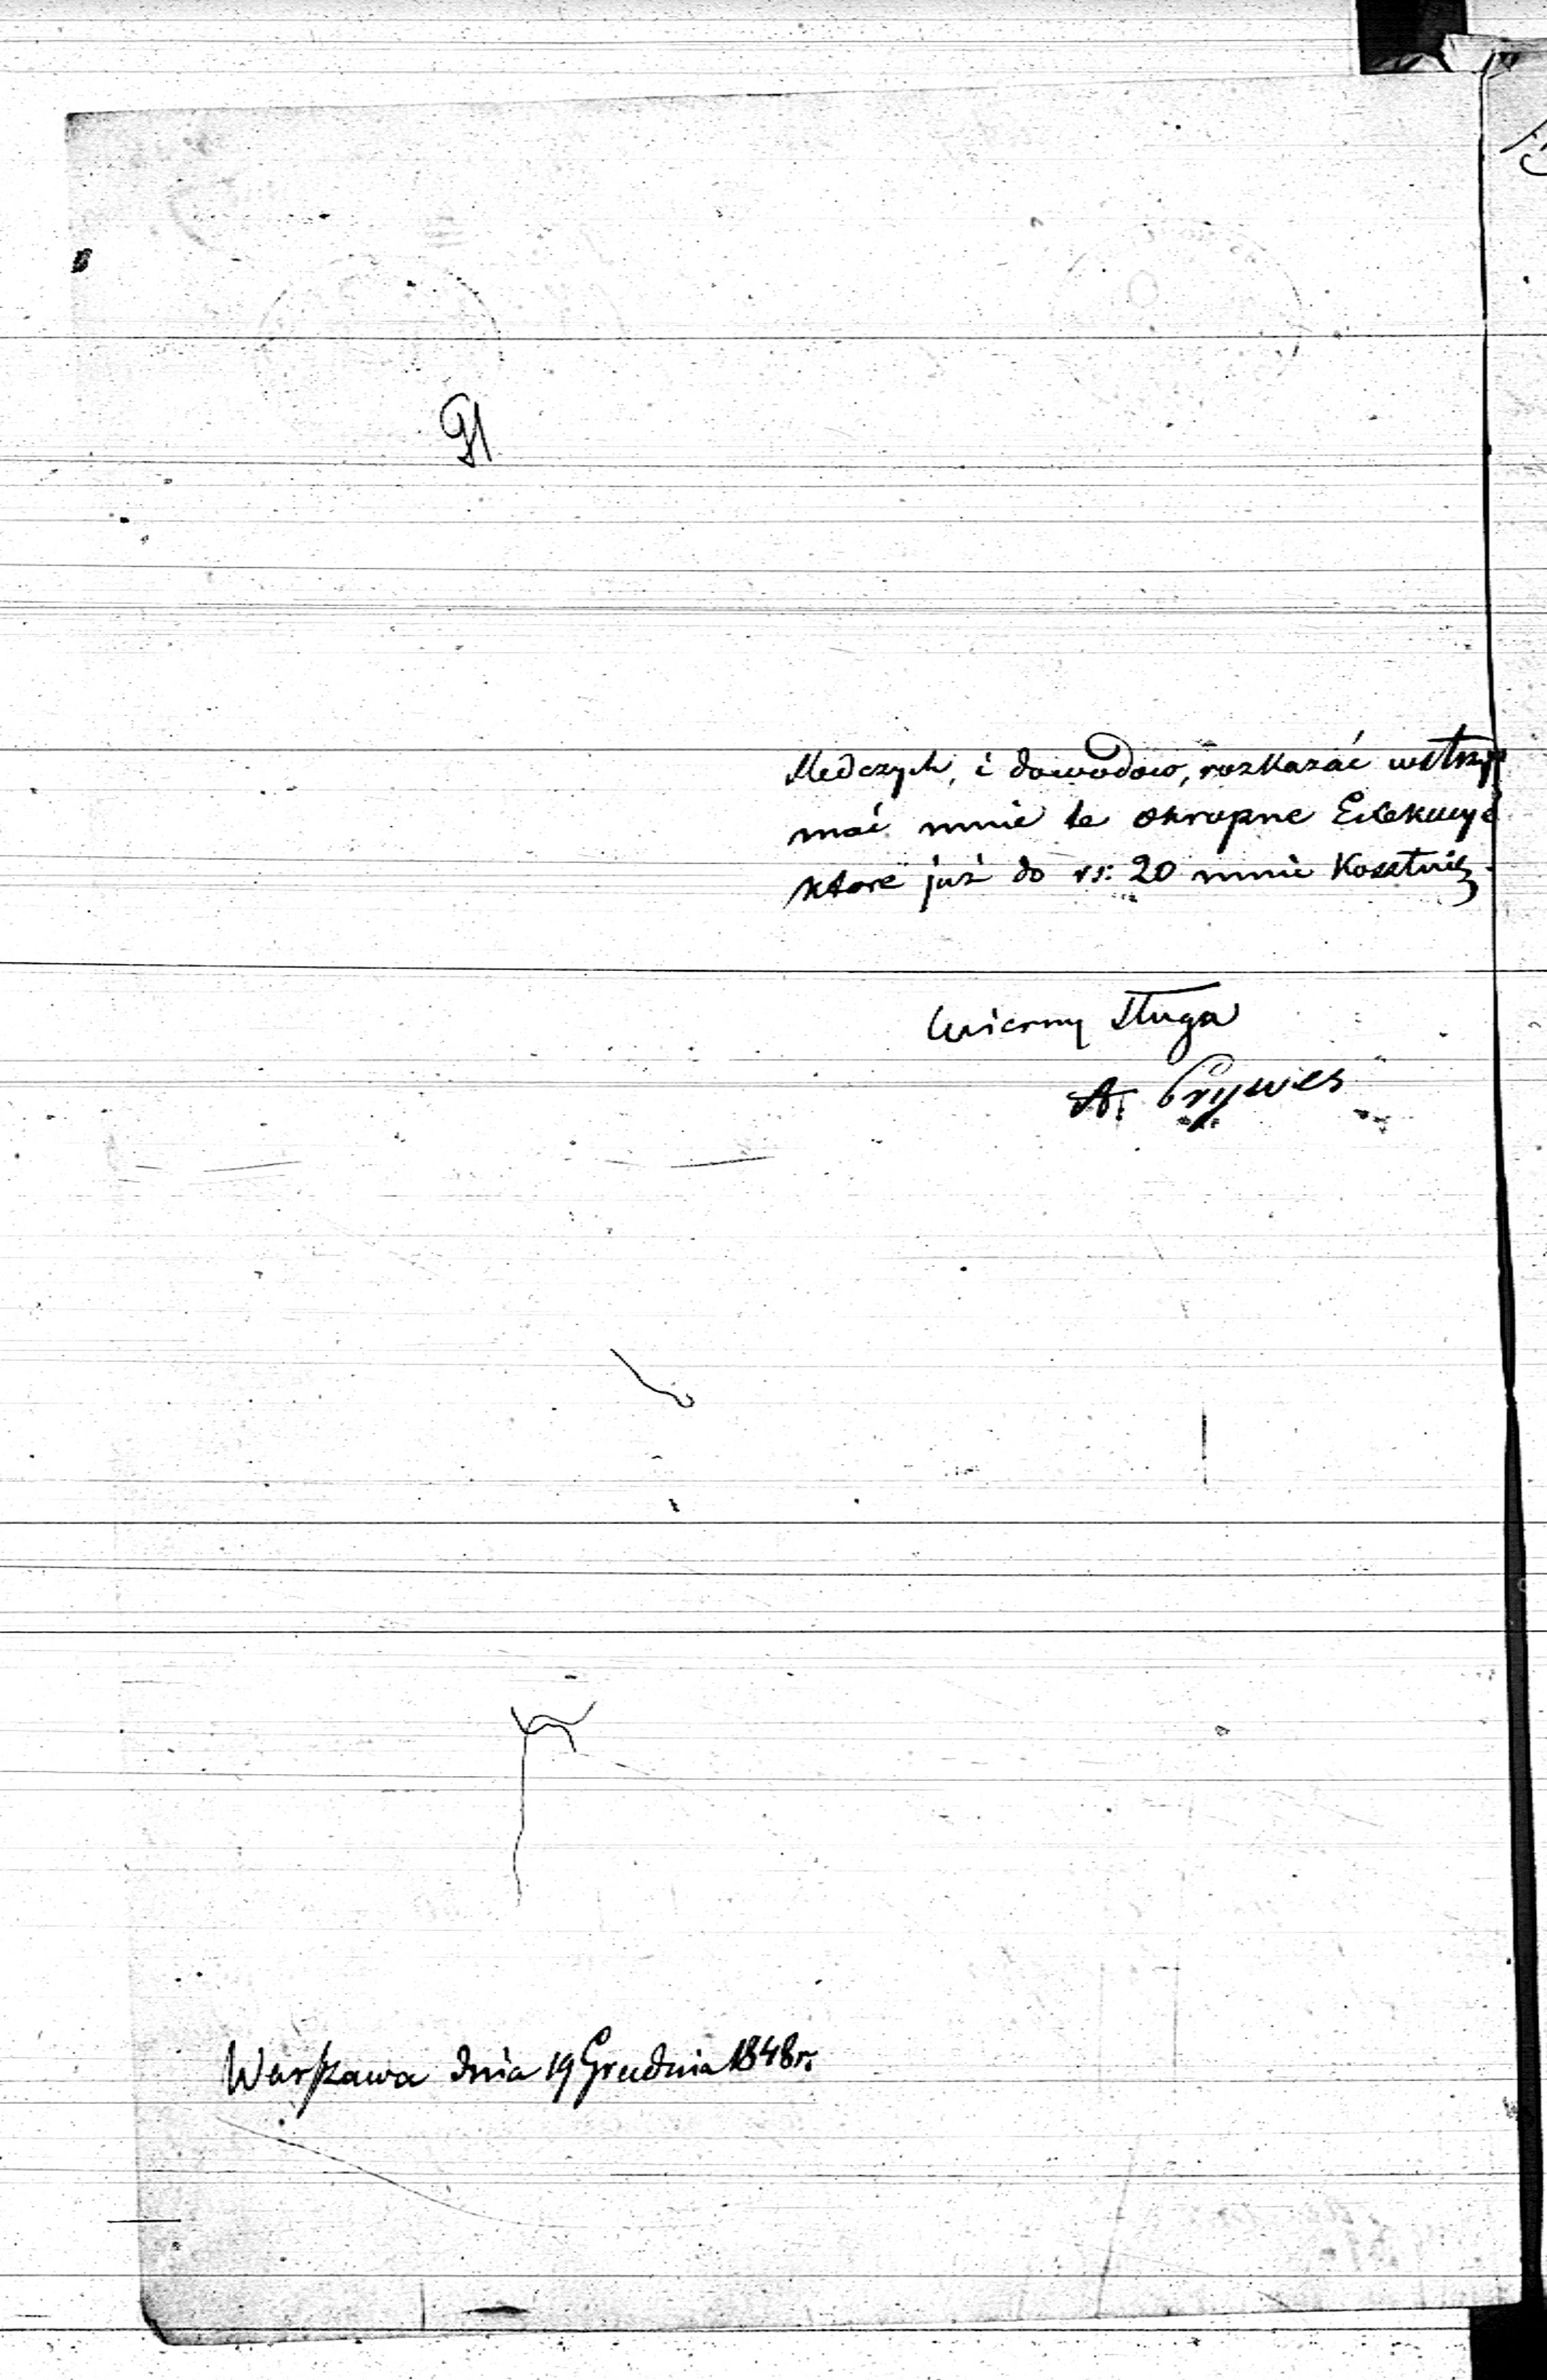 91
Śledczych, i dowodow, rozkazać wstrzy
mać mnie te okropne Exekucye
ktore już do rs: 20 mnie Kosztuię.
Wierny Sługa
A. Prywes
Warszawa dnia 19 Grudnia 1848 r.